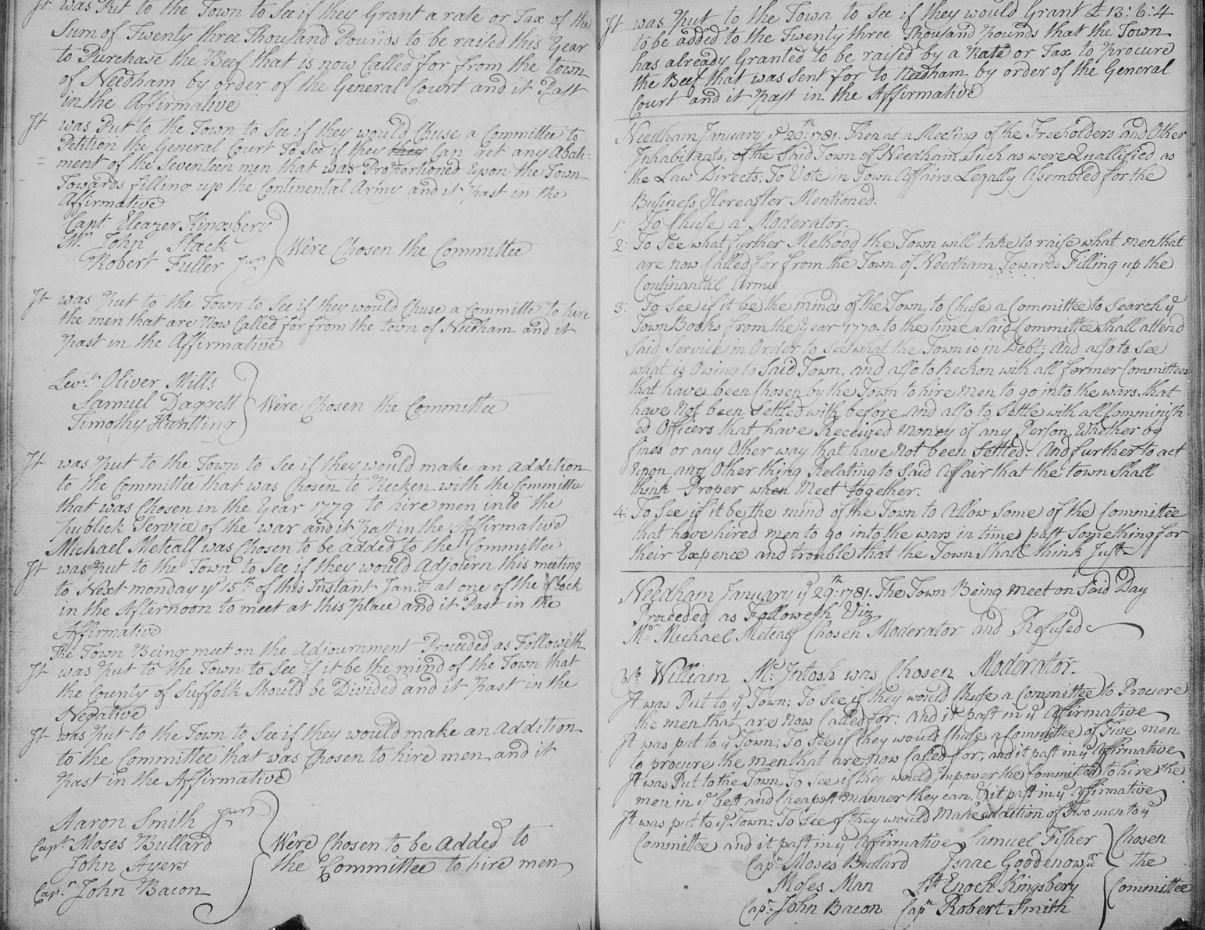 It was Put to the Town to See if they Grant a rate or Tax of the
Sum of Twenty three Thousand Pounds to be raised this Year
to Purchase the Beef that is now Called for from the town
of Needham by order of the General Court and it Past
in the Affirmative
It was Put to the Town to See if they would Chuse a Committee to
Petition the General Court To See if they they Can get any Abate=
=ment of the Seventeen men that was Proportioned upon the Town
Towards filling up the Continental Army and it Past in the
Affirmative
Capt Eleazer Kingsbery
Mr. John Slack
Robert Fuller Junr
Were Chosen the Committee
It was Put to the Town to See if they would Chuse a Committe to hire
the men that are Now Called for from the town of Needham and it
Past in the Affirmative
Levt. Oliver Mills
Samuel Dagrett
Timothy Huntting
Were Chosen the Committee
It was Put to the Town to See if they would make an addition
to the Committee that was Chosen to Recken with the Committe
that was Chosen in the Year 1779 to hire men into the
Publick Service of the war and it Past in the Affirmative
Michael Metcalf was Chosen to be added to the Committee
It was Put to the Town to See if they would Adjorn this meeting
to Next monday ye 15th of this Instant Jany. at one of the Clock
in the Afternoon to meet at this Place and it Past in the
Affirmative
The Town Being meet on the Adjournment Proceded as Followith
It was Put to the Town to See if it be the mind of the Town that
the County of Suffolk Should be Divided and it Past in the
Negative
It was Put to the Town to See if they would make an Addition
to the Committee that was Chosen to hire men and it
Past in the Affirmative
Aaron Smith Junr
Capt. Moses Bullard
John Ayers
Capt. John Bacon
Were Chosen to be Added to
the Committee to hire men
It was Put to the Town to See if they would Grant £ 13:6:4
to be added to the Twenty three Thousand Pounds that the Town
has already Granted to be raised by a Rate or Tax to Procure
the Beef that was sent for to Needham by order of the General
Court and it Past in the Affirmative
Needham January ye 29th: 1781: Then at a Meeting of the Freeholders and Other
Inhabitants, of the Said Town of Needham, Such as were Quallified, as
the Law Directs; To Vote in Town Affairs. Legally Assembled for the
Business, Hereafter Mentioned.
1: To Chuse a Moderator.
2: To See what further Methood the Town will take to raise what men that
are now Called for from the Town of Needham Towards Filling up the
Continantil Army
3: To see if it be the minds of the Town, to Chuse a Committee to Search ye
Town Books from the Year 1770. to the time Said Committee Shall attend
Said Service in Order to see what the Town is in Debt; And also to see
what is Owing to Said Town, and also to Reckon with all former Committees
that have been Chosen by the Town to hire men to go into the wars, that
have not been Settled with before, And also to Settle with all Commissin
ed Officers that have Received money of any Person, Whether by
fines or any Other way that have Not been Settled. And further to act
upon any Other thing Relating to Said Affair that the town Shall
think Proper when Meet together.
4: To See if it be the mind of the Town to Allow Some of the Committee
that have hired men to go into the wars in time past Something for
their Expence and trouble that the Town Shall think Just
Needham January ye 29th: 1781. The Town Being meet on Said Day
Proceeded as Followeth Viz
Mr. Michael Metcalf Chosen Moderator and Refused
William McIntosh was Chosen Moderator.
It was Put to ye Town; To See if they would Chuse a Committee to Procure
the men that are now Called for; and it past in ye Affirmative
It was put to ye Town; To See if they would Chuse a Committee of Five men
to procure the men that are now Called for; and it past in ye Affirmative
It was Put to the Town, To See if they would Impower the Committee to hire the
men in ye best and Cheapest manner they can, & it past in ye Affirmative
It was put to ye Town: To See if they would Make addition of Two men to ye
Committee and it past in ye Affirmative Samuel Fisher
Capt. Moses Bullard Isaac Goodenow Jr
Moses Man Lt Enoch Kingsbery
Capt. John Bacon Capt. Robert Smith
Chosen
the
Committee